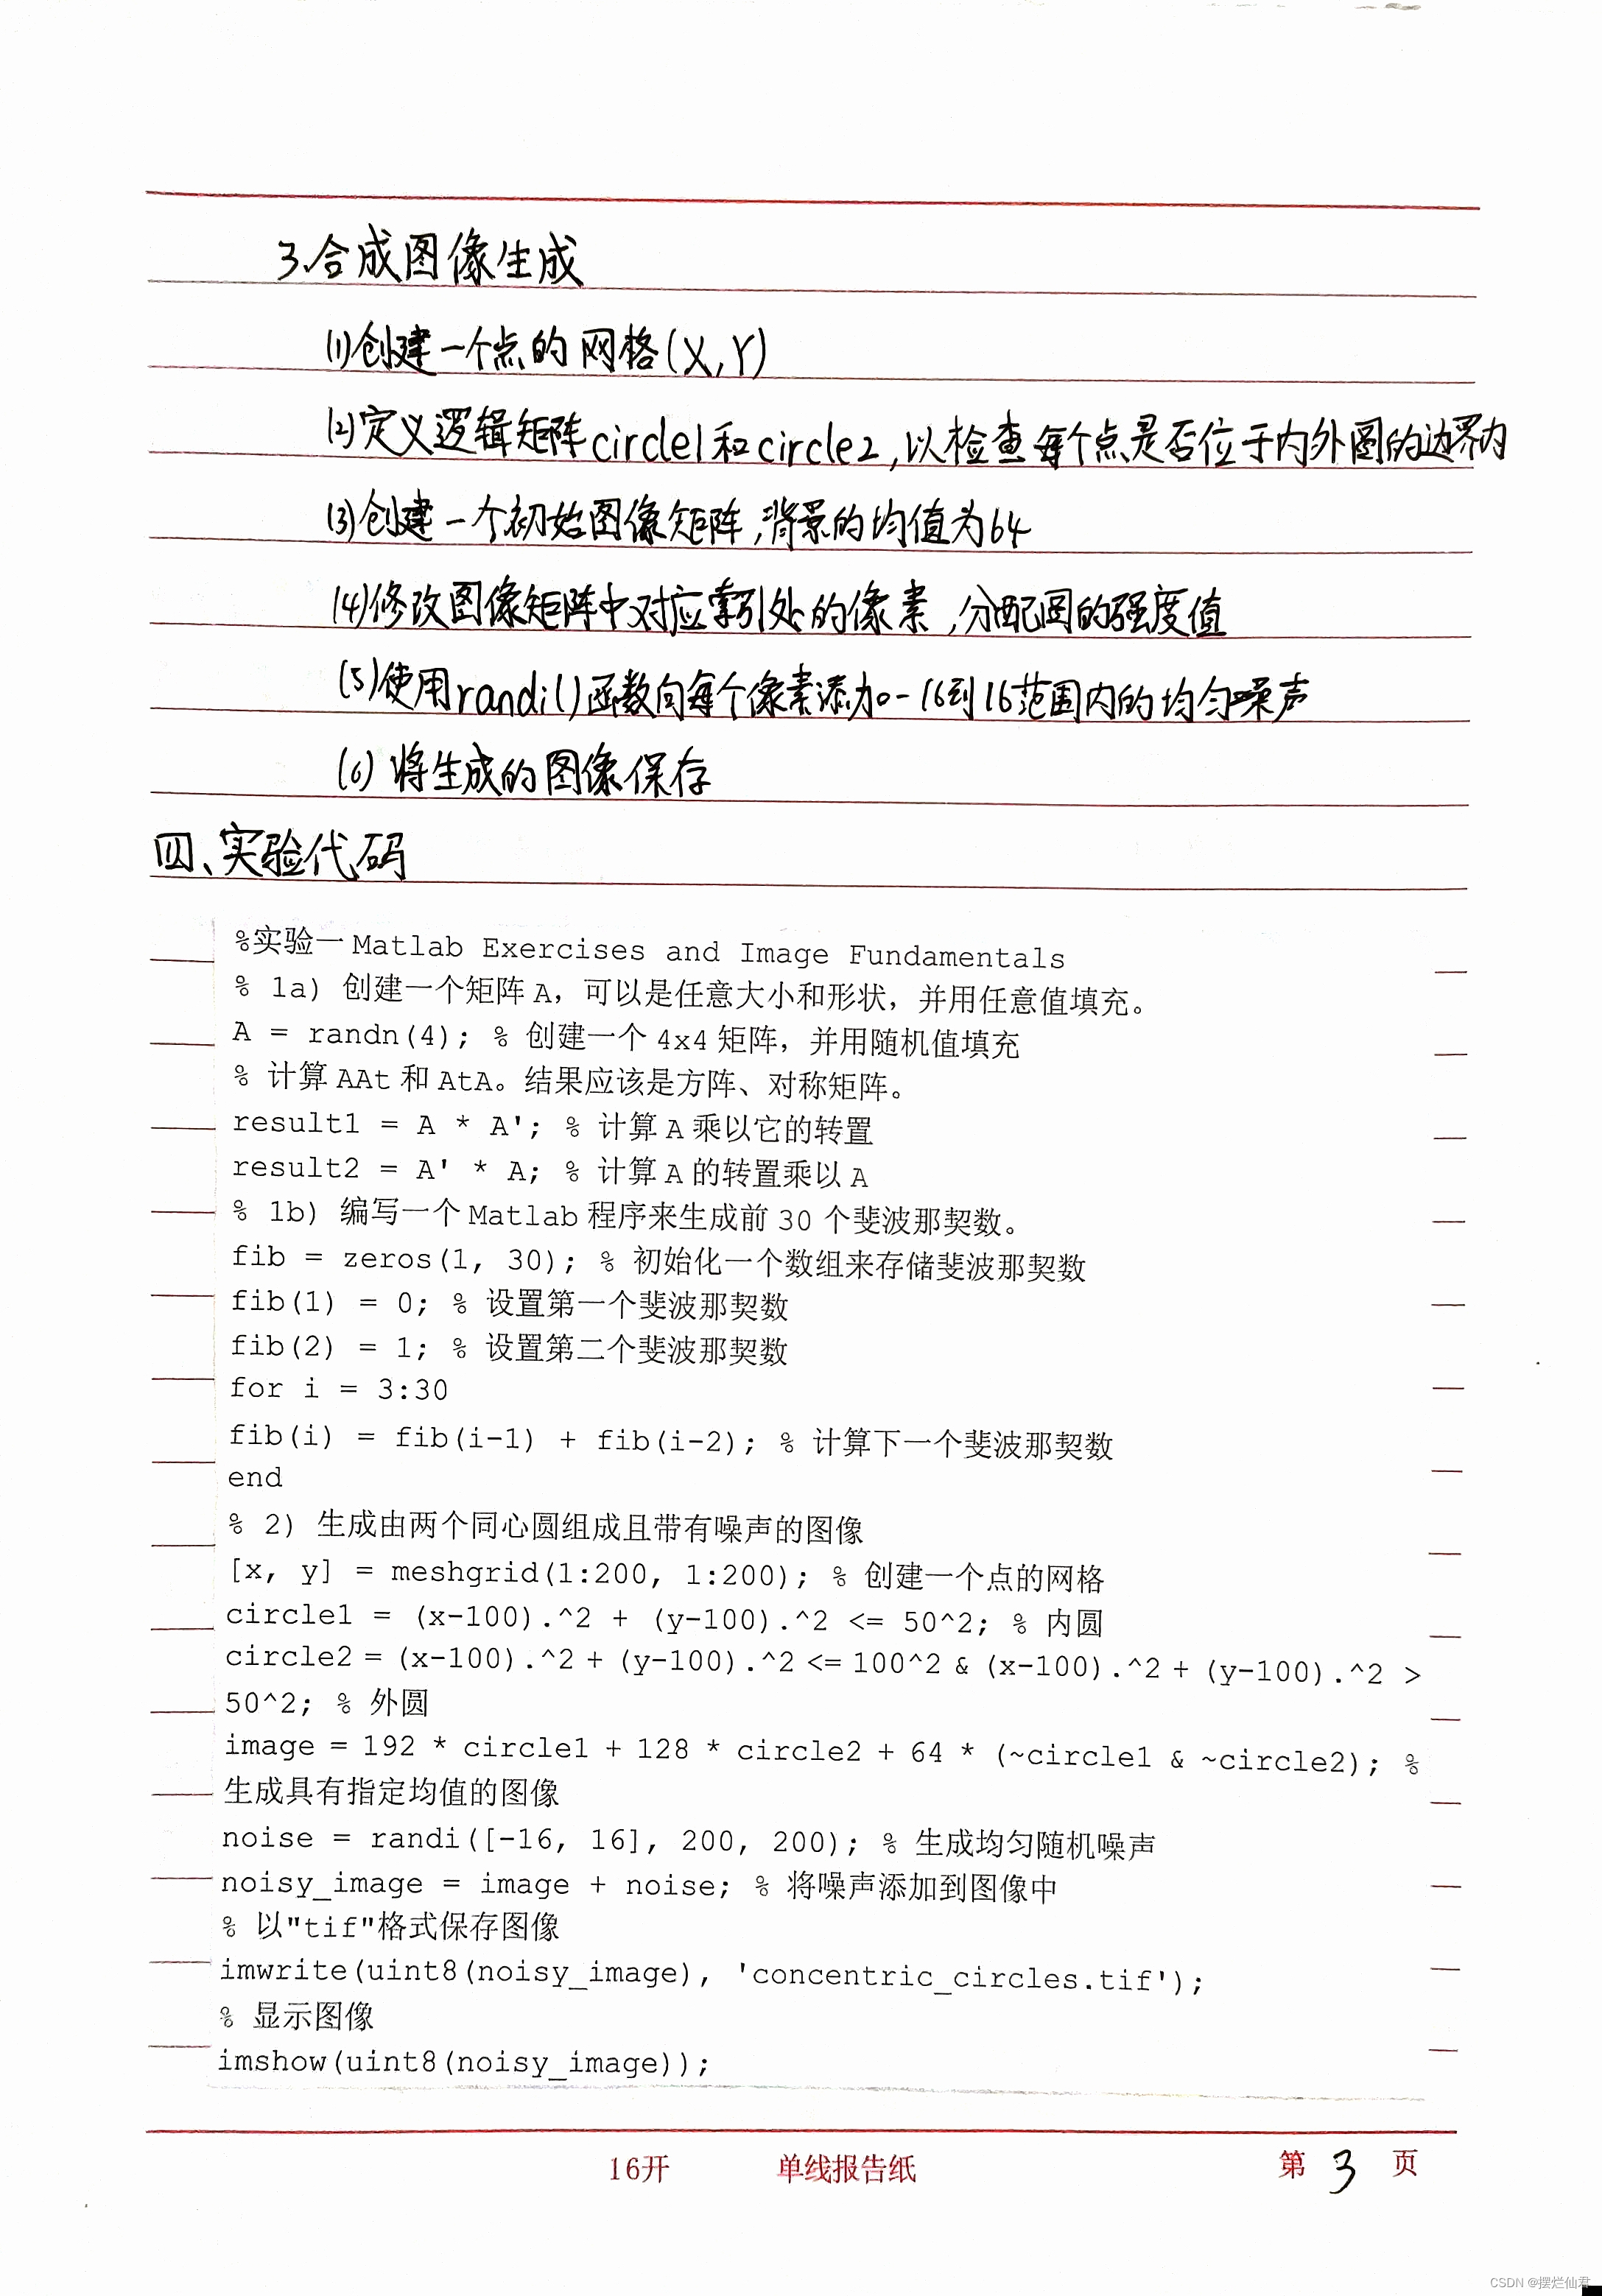 3.合成图像生成
(1)创建一个点的网格(X,Y)
(2)定义逻辑矩阵circle1和circle2,以检查每个点是否位于内外圈的边界内
(3)创建一个初始图像矩阵,背景的均值为64
(4)修改图像矩阵中对应索引处的像素,分配圆的强度值
(5)使用randi()函数向每个像素添加-16到16范围内的均匀噪声
(6)将生成的图像保存
四、实验代码
%实验一 Matlab Exercises and Image Fundamentals
% 1a) 创建一个矩阵 A，可以是任意大小和形状，并用任意值填充。
A = randn(4); % 创建一个 4x4 矩阵，并用随机值填充
% 计算 AAt 和 AtA。结果应该是方阵、对称矩阵。
result1 = A * A'; % 计算 A 乘以它的转置
result2 = A' * A; % 计算 A 的转置乘以 A
% 1b) 编写一个 Matlab 程序来生成前 30 个斐波那契数。
fib = zeros(1, 30); % 初始化一个数组来存储斐波那契数
fib(1) = 0; % 设置第一个斐波那契数
fib(2) = 1; % 设置第二个斐波那契数
for i = 3:30
fib(i) = fib(i-1) + fib(i-2); % 计算下一个斐波那契数
end
% 2) 生成由两个同心圆组成且带有噪声的图像
[x, y] = meshgrid(1:200, 1:200); % 创建一个点的网格
circle1 = (x-100).^2 + (y-100).^2 <= 50^2; % 内圆
circle2 = (x-100).^2 + (y-100).^2 <= 100^2 & (x-100).^2 + (y-100).^2 >
50^2; % 外圆
image = 192 * circle1 + 128 * circle2 + 64 * (~circle1 & ~circle2); %
生成具有指定均值的图像
noise = randi([-16, 16], 200, 200); % 生成均匀随机噪声
noisy_image = image + noise; % 将噪声添加到图像中
% 以"tif"格式保存图像
imwrite(uint8(noisy_image), 'concentric_circles.tif');
% 显示图像
imshow(uint8(noisy_image));
16开 单线报告纸 第 3 页
CSDN @摆烂仙君